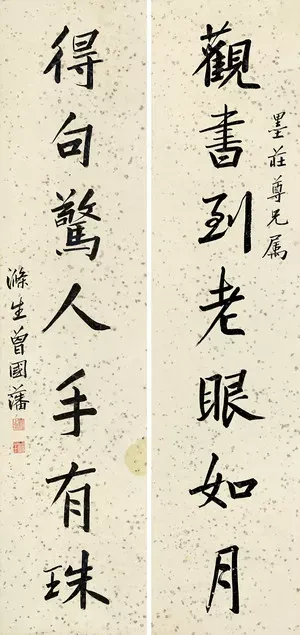 觀書到老眼如月
墨莊尊兄屬
得句驚人手有珠
滌生曾國藩